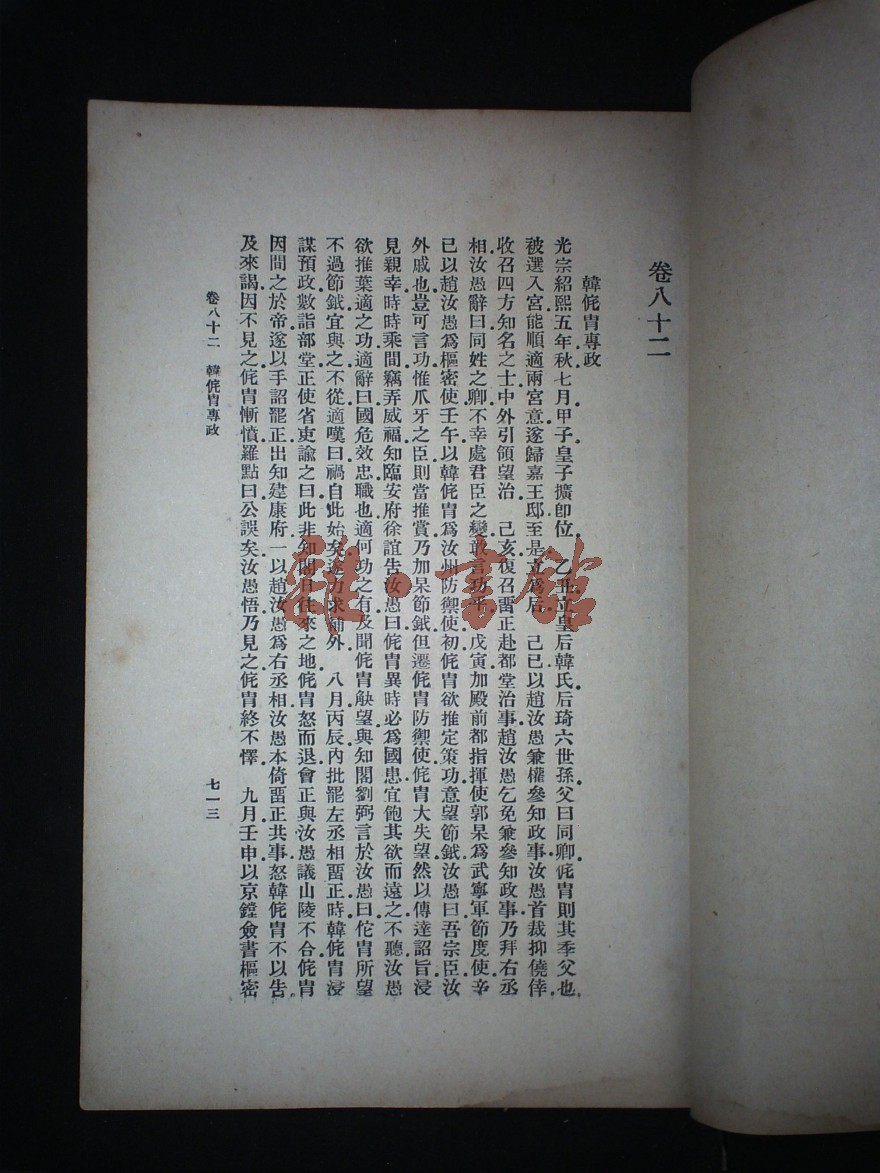 卷八十二
韓侂冑專政
光宗紹熙五年秋七月甲子皇子擴卽位 乙丑立皇后韓氏后琦六世孫父曰同卿侂冑則其季父也
被選入宮能順適兩宮意遂歸嘉王邸至是立爲后 己巳以趙汝愚兼權參知政事汝愚首裁抑僥倖
收召四方知名之士中外引領望治 己亥復召畱正赴都堂治事趙汝愚乞免兼參知政事乃拜右丞
相汝愚辭曰同姓之卿不幸處君臣之變敢言功乎 戊寅加殿前都指揮使郭杲爲武寧軍節度使辛
已以趙汝愚爲樞密使壬午以韓侂冑爲汝州防禦使初侂冑欲推定策功意望節鉞汝愚曰吾宗臣汝
外戚也豈可言功惟爪牙之臣則當推賞乃加杲節鉞但遷侂冑防禦使侂冑大失望然以傳達詔旨浸
見親幸時時乘間竊弄威福知臨安府徐誼告汝愚曰侂冑異時必爲國患宜飽其欲而遠之不聽汝愚
欲推葉適之功適辭曰國危效忠職也適何功之有及聞侂冑觖望與知閤劉弼言於汝愚曰侂冑所望
不過節鉞宜與之不從適嘆曰禍自此始矣遂力求補外 八月丙辰內批罷左丞相畱正時韓侂冑浸
謀預政數詣部堂正使省吏諭之曰此非知閤日往來之地侂冑怒而退會正與汝愚議山陵不合侂冑
因間之於帝遂以手詔罷正出知建康府一以趙汝愚爲右丞相汝愚本倚畱正共事怒韓侂冑不以告
及來謁因不見之侂冑慚憤羅點曰公誤矣汝愚悟乃見之侂冑終不懌 九月壬申以京鏜僉書樞密
卷八十二 韓侂冑專政
七一三
雜·書館